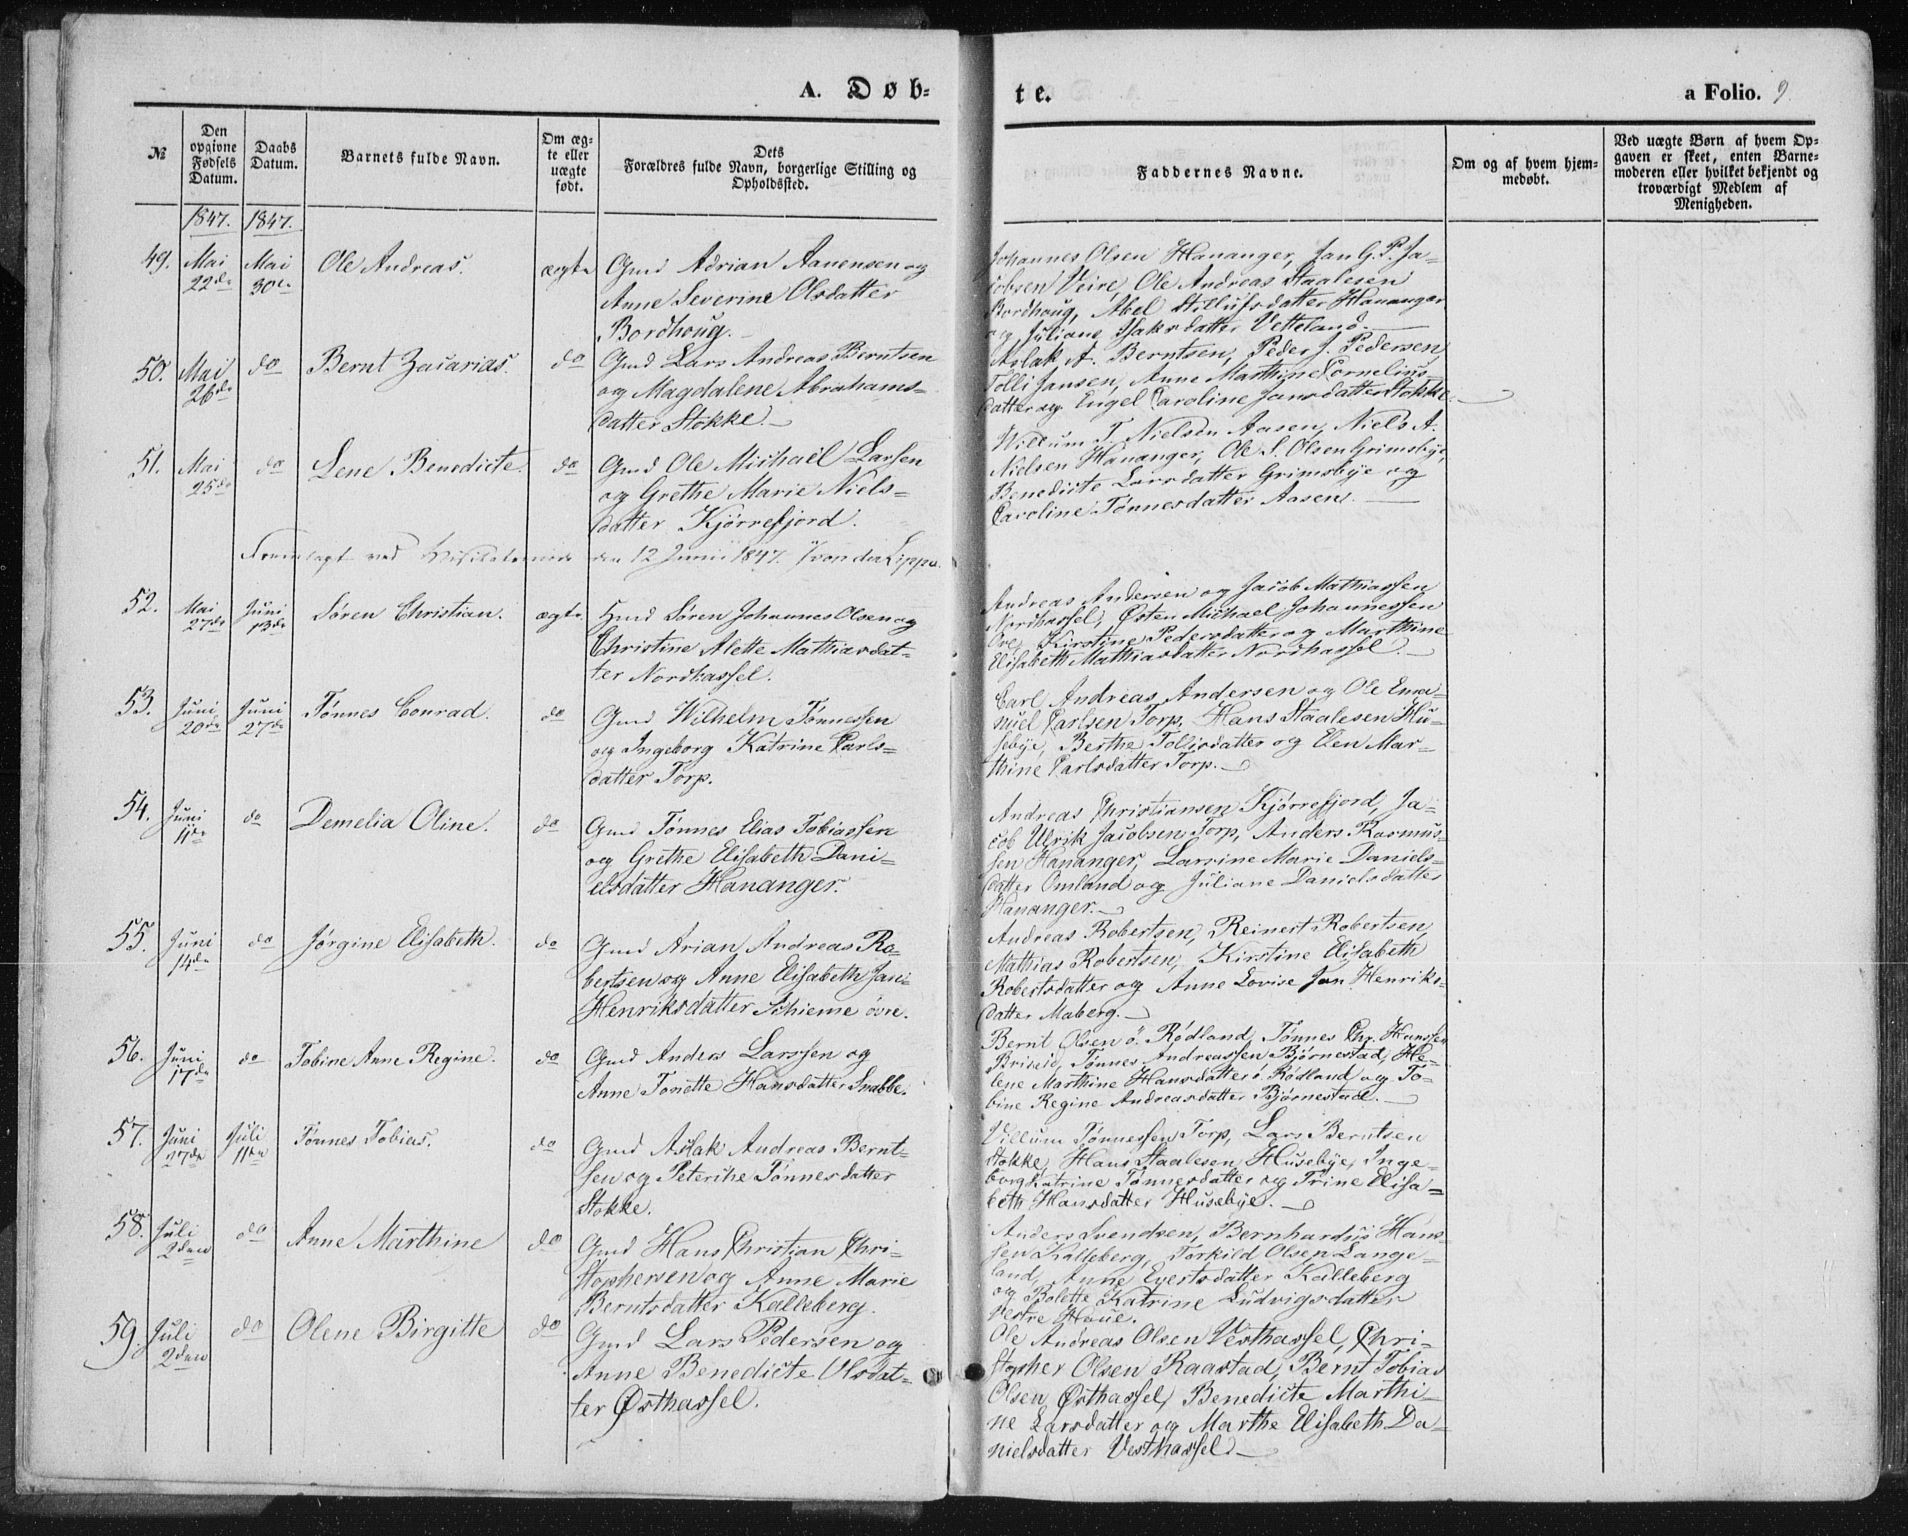 A. Døb=
te.
a Folio. 9
№
Den opgivne Fødsels Datum.
Daabs Datum.
Barnets fulde Navn.
Om æg-te eller uægte født.
Dets
Forældres fulde Navn, borgerlige Stilling og Opholdssted.
Faddernes Navne.
Om og af hvem hjem-medøbt.
Ved uægte Børn af hvem Op-gaven er skeet, enten Barne-moderen eller hvilket bekjendt og troværdigt Medlem af Menigheden.
1847. 1847.
49. Mai 22de Mai 30te Ole Andreas. ægte Gmd Adrian Aanensen og
Anne Severine Olsdatter
Bordhoug.
Johannes Olsen Hananger, Jan G. P. Ja-
cobsen Veire, Ole Andreas Staalesen
Bordhoug, Abel Hanangar
og Juliane Isaksdatter Vetteland.
50. Mai 26de do Bernt Zacarias. do Gmd Lars Andreas Berntsen
og Magdalene Abrahams-
datter Stokke.
Aslak A. Berntsen, Peder J. Pedersen,
Tolli Jansen, Anne Marthine Cornelius-
datter og Engel Caroline Jansdatter Stokke.
51. Mai 25de do Lene Benedicte. do Gmd Ole Michael Larsen
og Grethe Marie Niels=
datter Kjørrefjord.
Willum T. Nielsen Aasen, Niels A.
Nielsen Hananger, Ole S. Olsen Grimsbye,
Benedicte Larsdatter Grimsbye og
Caroline Tønnesdatter Aasen.
Fremlagt ved Visitatsen den 12 Junii 1847. J von der Lippe.
52. Mai 27de Juni 13de Søren Christian. ægte Hmd Søren Johannes Olsen og
Christine Alette Mathiasdat-
ter Nordhassel.
Andreas Andersen og Jacob Mathiassen
Nordhassel, Østen Michael Johannessen
Ore, Kirstine Pedersdatter og Marthine
Elisabeth Mathiasdatter Nordhassel.
53. Juni 20de Juni 27de Tønnes Conrad. do Gmd Wilhelm Tønnessen
og Ingeborg Katrine Carls=
datter Torp.
Carl Andreas Andersen og Ole Ema-
nuel Carlsen Torp, Hans Staalesen Hu-
sebye, Berthe Tollisdatter og Elen Mar-
thine Carlsdatter Torp.
54. Juni 11te do Demelia Oline. do Gmd Tønnes Elias Tobiassen
og Grethe Elisabeth Dani-
elsdatter Hananger.
Andreas Christiansen Kjørrefjord, Ja-
cob Ulrik Jacobsen Torp, Anders Rasmus-
sen Hananger, Larsine Marie Daniels=
datter Omland og Juliane Danielsdatter
Hananger.
55. Juni 14de do Jørgine Elisabeth. do Gmd Arian Andreas Ro-
bertsen og Anne Elisabeth Jan-
Henriksdatter Schieme øvre.
Andreas Robertsen, Reinert Robertsen,
Mathias Robertsen, Kirstine Elisabeth
Robertsdatter og Anne Lovise Jan Henriks-
datter Maberg.
56. Juni 17de do Tobine Anne Regine. do Gmd Anders Larssen og
Anne Tonette Hansdatter Snabbe.
Bernt Olsen ö. Rødland, Tønnes Chr. Hanssen
Briseid, Tønnes Andreassen Bjørnestad, He-
lene Marthine Hansdatter ö. Rødland og To-
bine Regine Andreasdatter Bjørnestad.
57. Juni 27de Juli 11te Tønnes Tobias. do Gmd Aslak Andreas Bernt-
sen og Peterike Tønnesdatter
Stokke.
Villum Tønnessen Torp, Lars Berntsen
Stokke, Hans Staalesen Husebye, Inge-
borg Katrine Tønnesdatter og Trine Elisa-
beth Hansdatter Husebye.
58. Juli 2den do Anne Marthine do Gmd Hans Christian Chri-
stophersen og Anne Marie
Berntsdatter Kalleberg.
Anders Svendsen, Bernhardus Hans-
sen Kalleberg, Torkild Olsen Lange-
land, Anne Evertsdatter Kalleberg
og Bolette Katrine Ludvigsdatter
Vestre Haue.
59. Juli 2den do Olene Birgitte do Gmd Lars Pedersen og
Anne Benedicte Olsdat-
ter Østhassel.
Ole Andreas Olsen Vesthassel, Chri-
stopher Olsen Raastad, Bernt Tobias
Olsen Østhassel, Benedicte Marthi-
ne Larsdatter og Marthe Elisabeth Da-
nielsdatter Vesthassel.